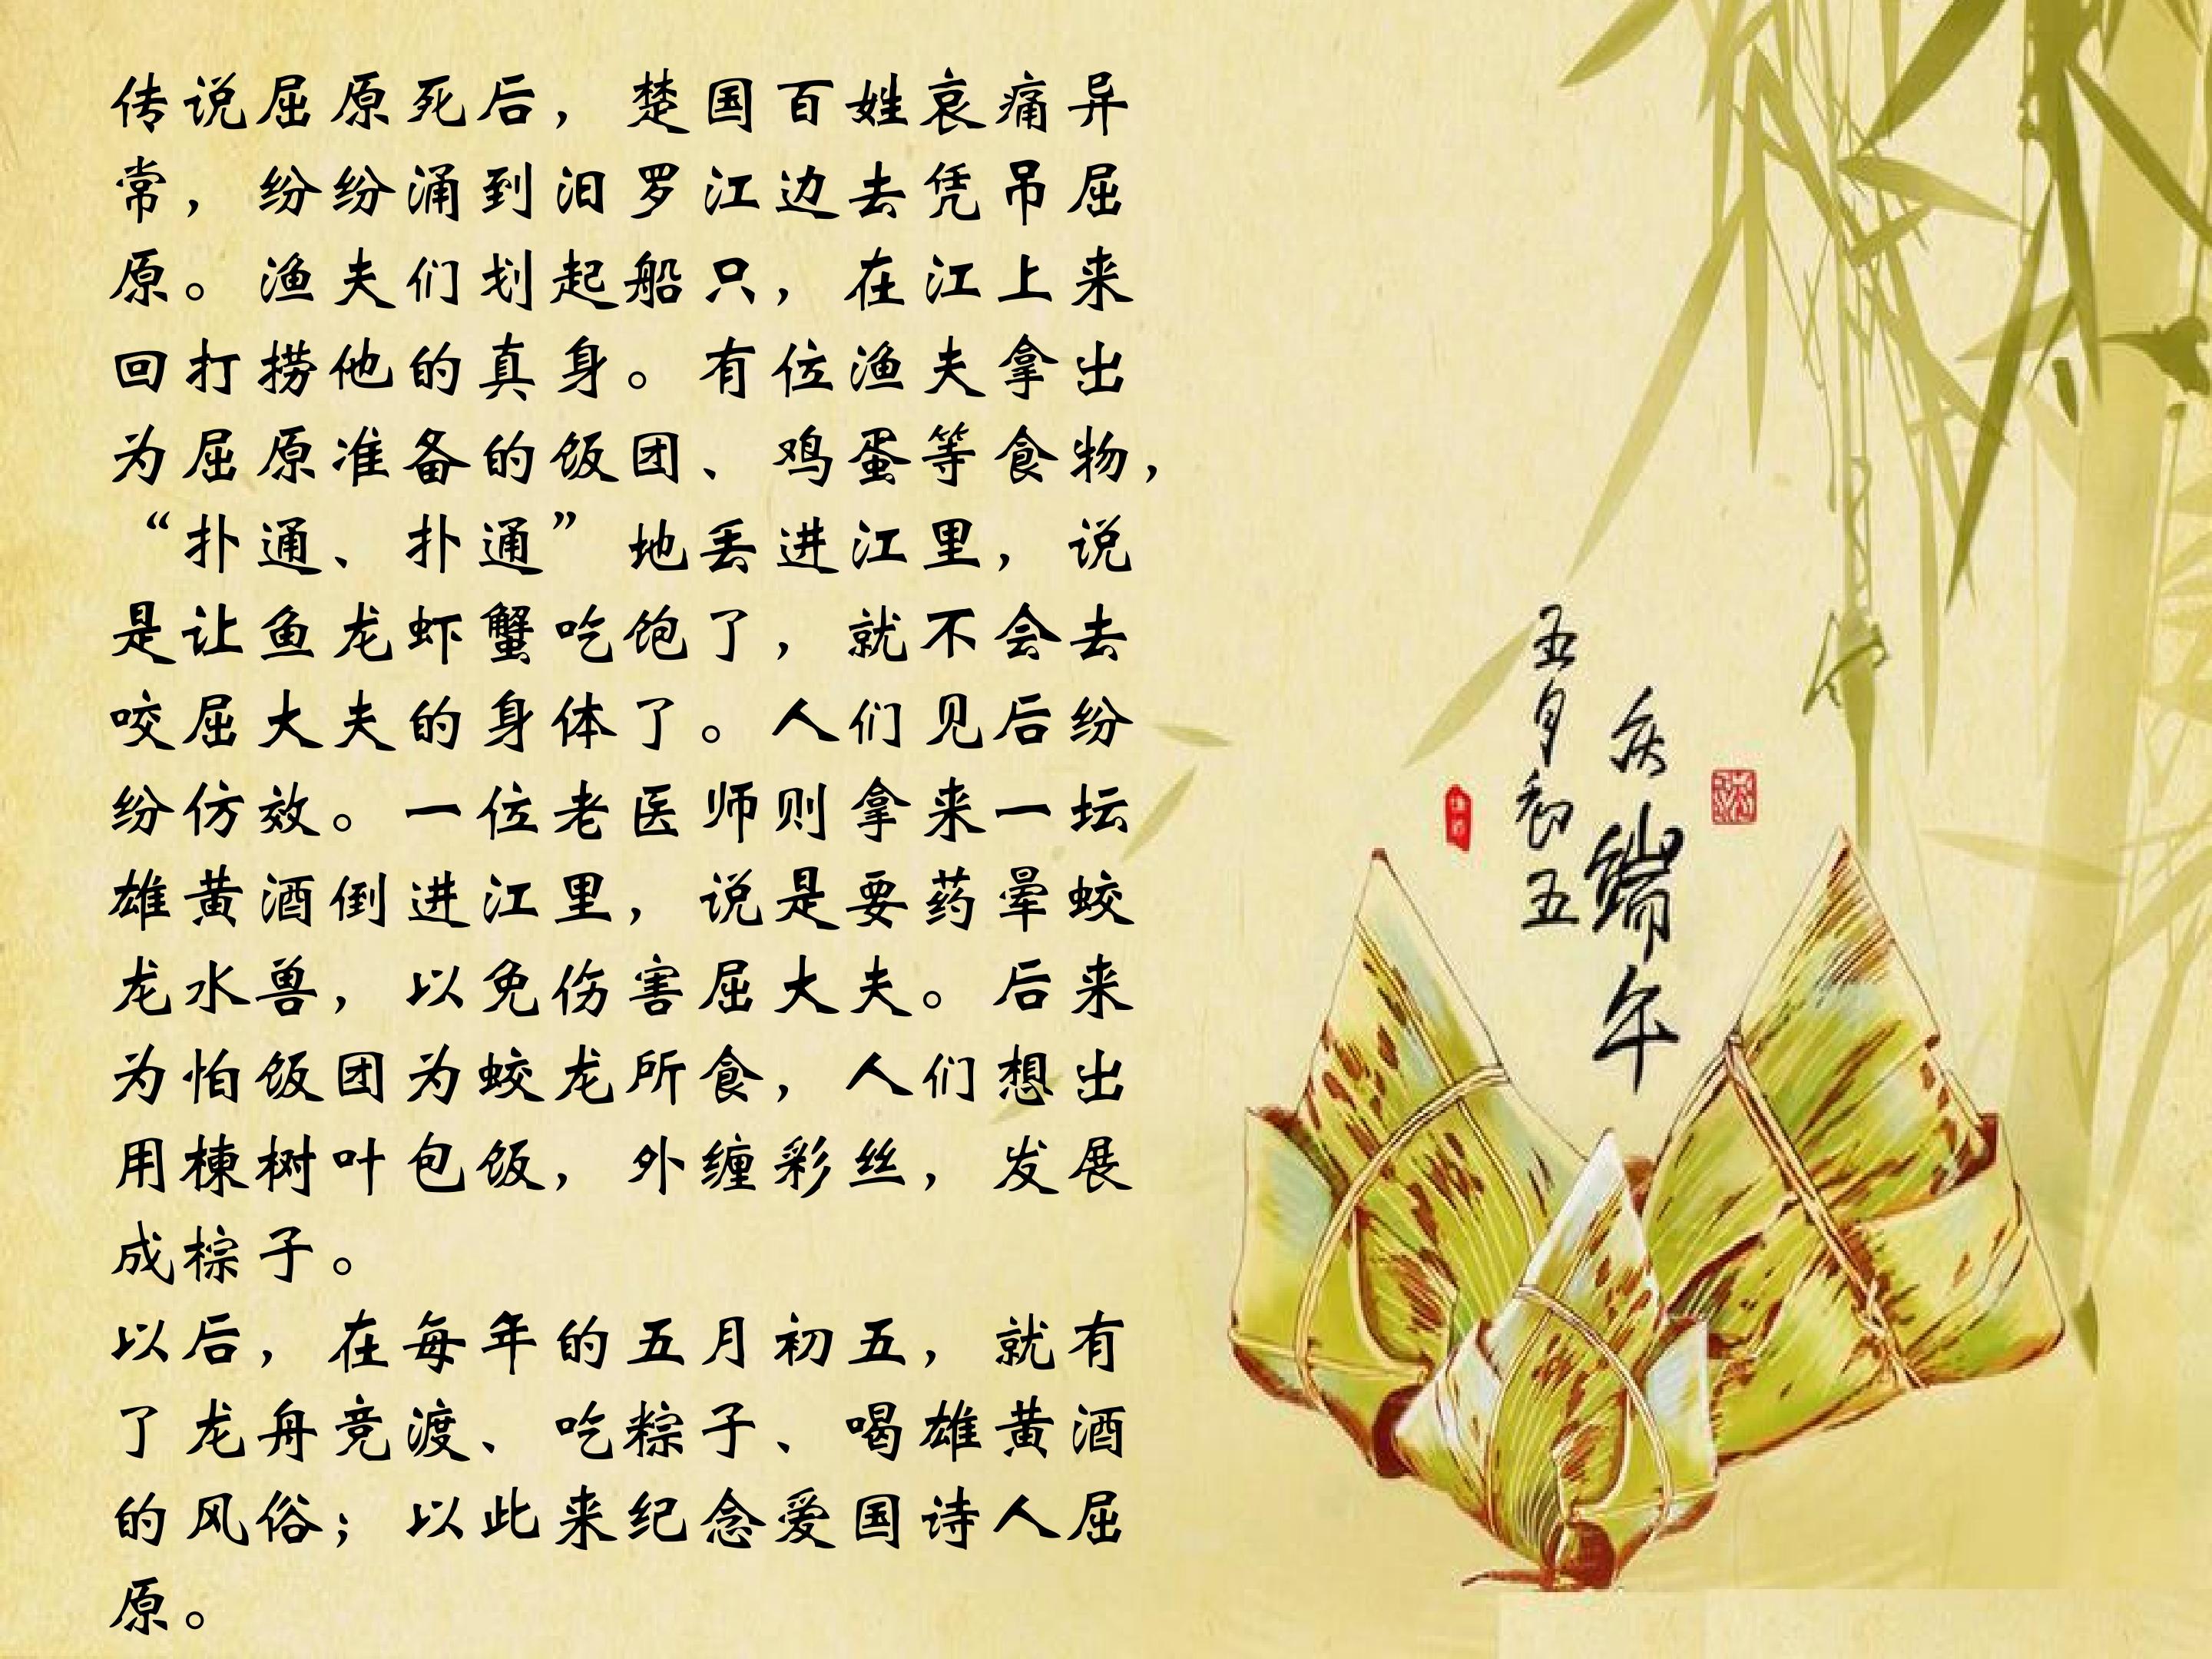 传说屈原死后，楚国百姓哀痛异
常，纷纷涌到汨罗江边去凭吊屈
原。渔夫们划起船只，在江上来
回打捞他的真身。有位渔夫拿出
为屈原准备的饭团、鸡蛋等食物，
“扑通、扑通”地丢进江里，说
是让鱼龙虾蟹吃饱了，就不会去
咬屈大夫的身体了。人们见后纷
纷仿效。一位老医师则拿来一坛
雄黄酒倒进江里，说是要药晕蛟
龙水兽，以免伤害屈大夫。后来
为怕饭团为蛟龙所食，人们想出
用楝树叶包饭，外缠彩丝，发展
成棕子。
以后，在每年的五月初五，就有
了龙舟竞渡、吃粽子、喝雄黄酒
的风俗；以此来纪念爱国诗人屈
原。
庆端午
五月初五